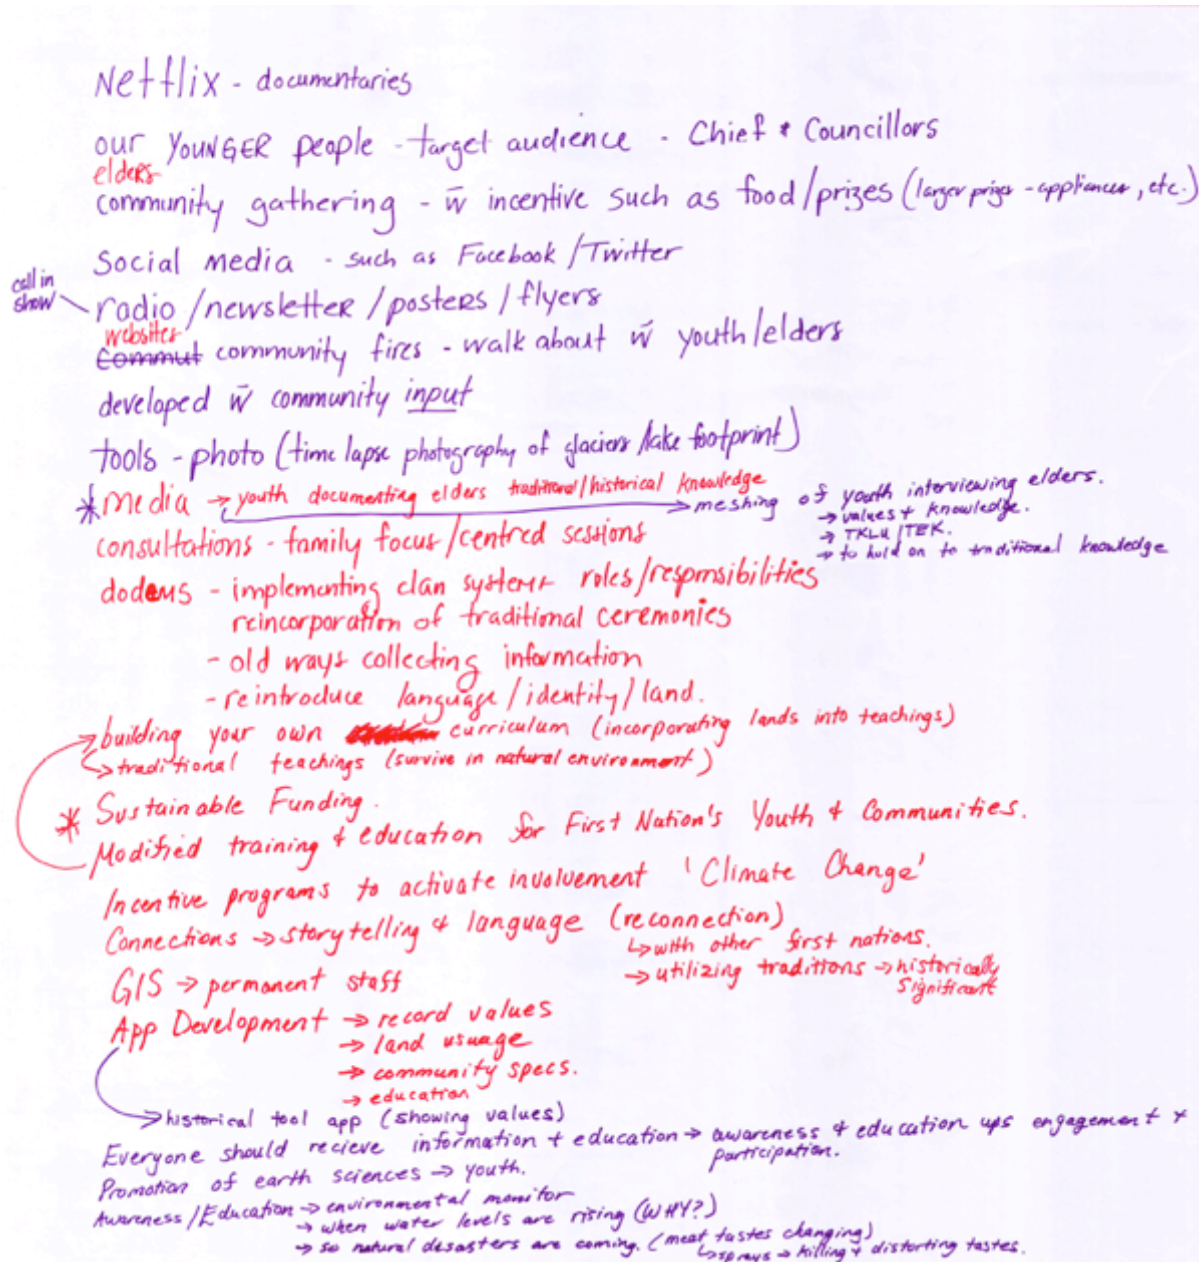 Netflix - documentaries
our YOUNGER people - target audience - Chief & Councillors
elders
community gathering - w̄ incentive such as food/prizes (larger prizes - appliances, etc.)
Social media - such as Facebook/Twitter
call in show
radio/newsletter/posters/flyers
websites
Commut community fires - walk about w̄ youth/elders
developed w̄ community input
tools - photo (time lapse photography of glaciers/lake footprint)
* media → youth documenting elders traditional/historical knowledge
→ meshing of youth interviewing elders.
→ values + knowledge.
→ TKLU/TEK.
→ to hold on to traditional knowledge
consultations - family focus/centred sessions
dodems - implementing clan systems roles/responsibilities
reincorporation of traditional ceremonies
- old ways collecting information
- reintroduce language/identity/land.
building your own curriculum (incorporating lands into teachings)
↳ traditional teachings (survive in natural environment)
* Sustainable Funding.
Modified training & education for First Nation's Youth & Communities.
Incentive programs to activate involvement 'Climate Change'
Connections → storytelling & language (reconnection)
↳ with other first nations.
→ utilizing traditions → historically significant
GIS → permanent staff
App Development → record values
→ land usuage
→ community specs.
→ education
→ historical tool app (showing values)
Everyone should recieve information + education → awareness & education ups engagement +
participation.
Promotion of earth sciences → youth.
Awareness/Education → environmental monitor
→ when water levels are rising (WHY?)
→ so natural desasters are coming. (meat tastes changing)
↳ sprays → killing + distorting tastes.